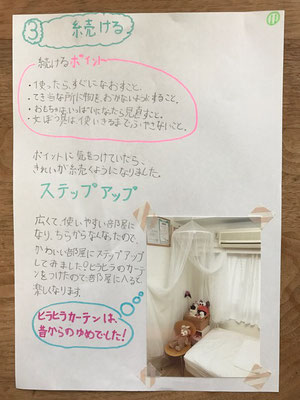 ③ 続ける
続けるポイント
・使ったら、すぐになおすこと。
・てき当な所に物を、おかないようにすること。
・おもちゃはいっぱいになったら見直すこと。
・文ぼう具は使いきるまでふやさないこと。
ポイントに気をつけていたら、
きれいが続くようになりました。
ステップアップ
広くて使いやすい部屋に
なり、ちらからなくなったので、
かわいい部屋にステップアップ
してみました!ヒラヒラのカーテ
ンをつけたので部屋に入ると
楽しくなります。
ヒラヒラカーテンは、
昔からのゆめでした!